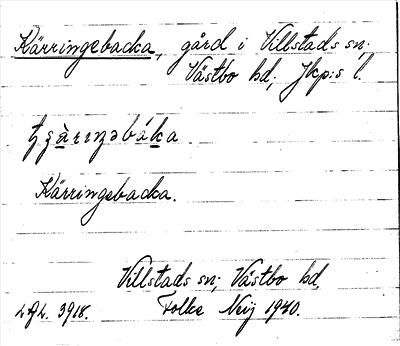 Kärringebacka, gård i Villstads sn;
Västbo hd, Jkp:s l.
Kärringebacka.
Villstads sn; Västbo hd,
Folke Neij 1940.